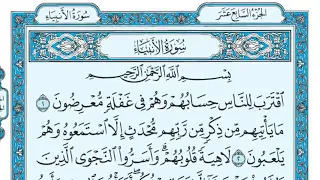 الجزء السابع عشر
سورة الأنبياء
سُورَةُ الأَنبِيَاءِ
بِسْمِ اللَّهِ الرَّحْمَٰنِ الرَّحِيمِ
ٱقْتَرَبَ لِلنَّاسِ حِسَابُهُمْ وَهُمْ فِي غَفْلَةٍ مُّعْرِضُونَ ١
مَا يَأْتِيهِم مِّن ذِكْرٍ مِّن رَّبِّهِم مُّحْدَثٍ إِلَّا ٱسْتَمَعُوهُ وَهُمْ
يَلْعَبُونَ ٢ لَاهِيَةً قُلُوبُهُمْ وَأَسَرُّوا۟ ٱلنَّجْوَى ٱلَّذِينَ